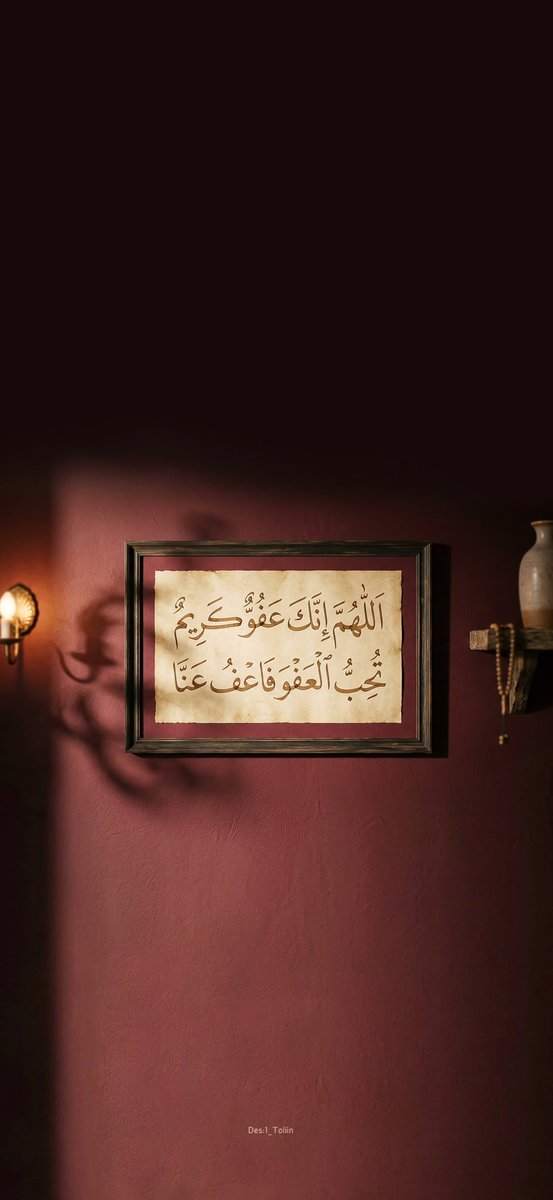 اَللّٰهُمَّ إِنَّكَ عَفُوٌّ كَرِيمٌ
تُحِبُّ ٱلْعَفْوَ فَاعْفُ عَنَّا
Des:1_Toliin